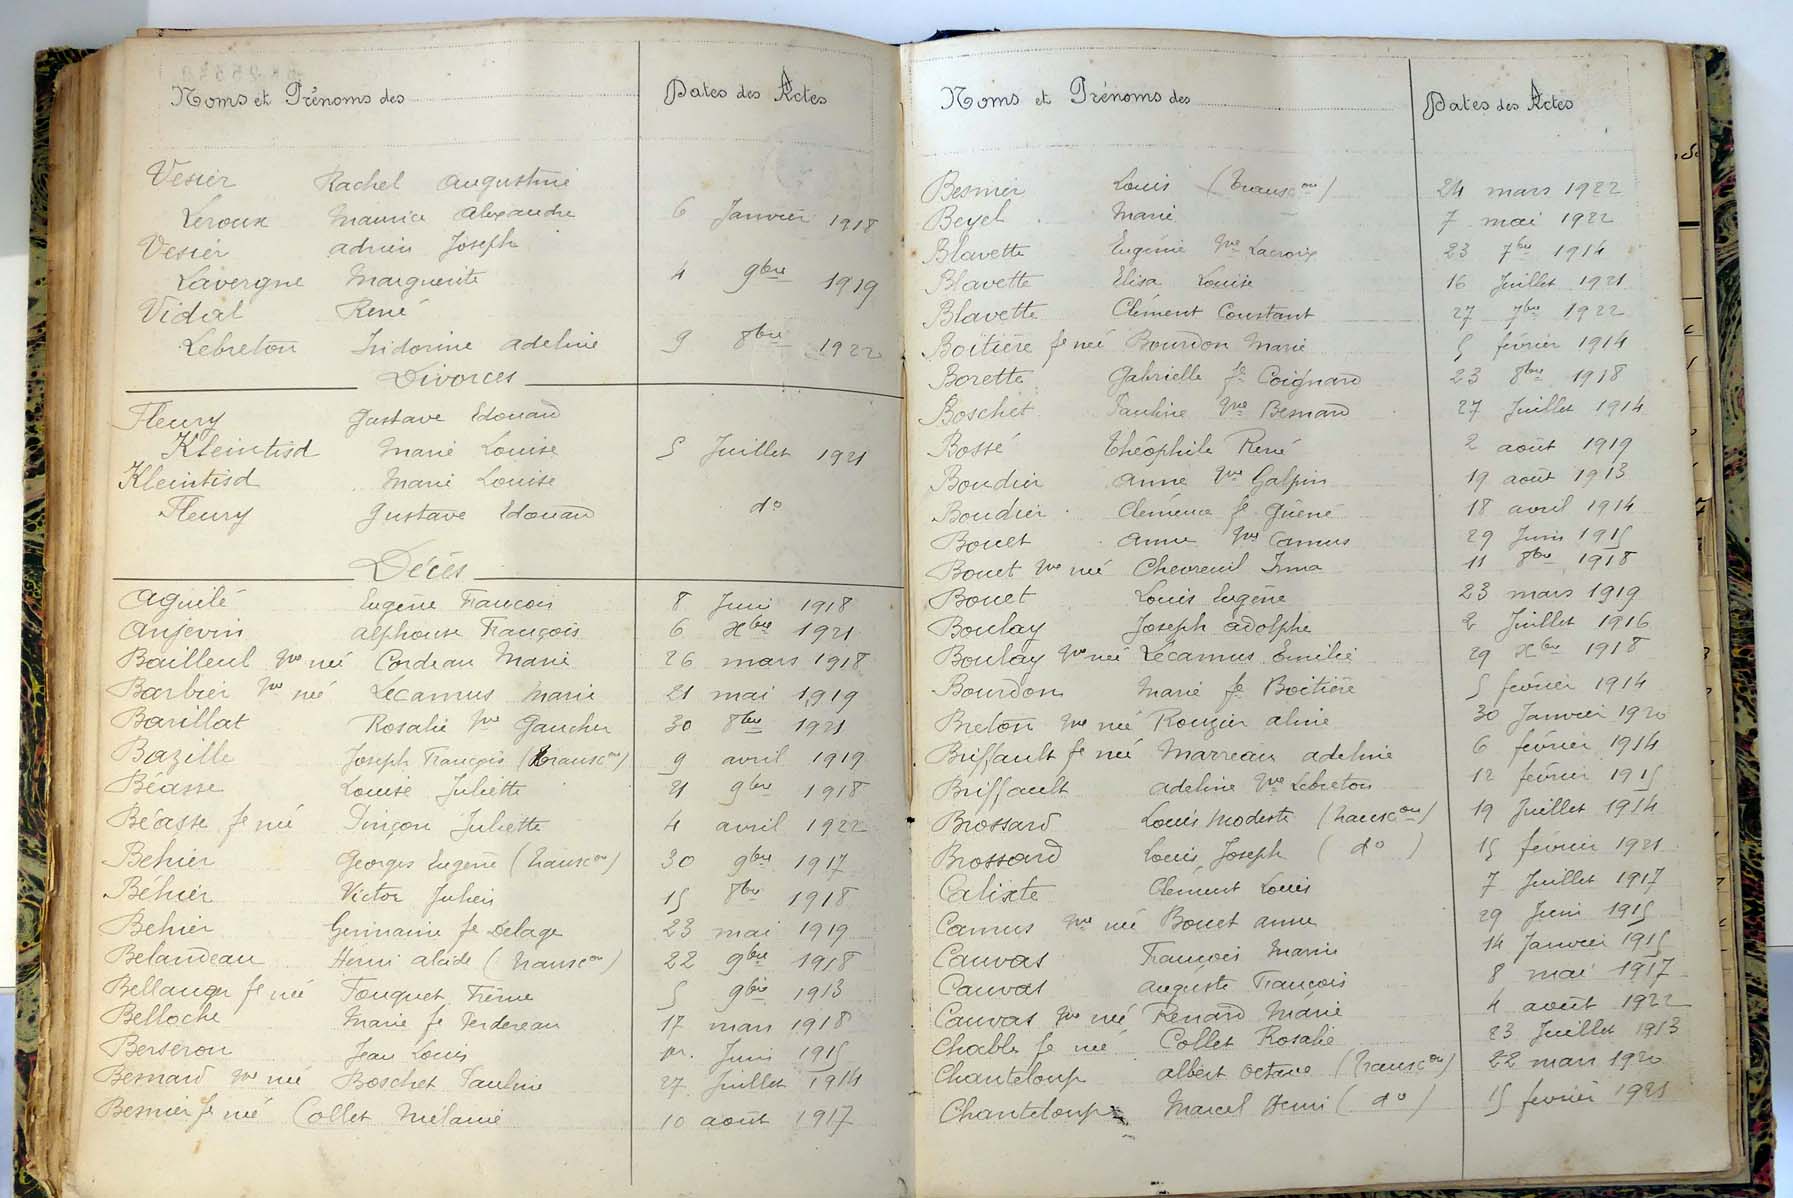 Noms et Prénoms des Dates des Actes
Vesier Rachel Augustine
Leroux Maurice Alexandre 6 Janvier 1918
Vesier Adrien Joseph
Lavergne Marguerite 4 9bre 1919
Vidal René
Lebreton Isidorine Adeline 9 8bre 1922
Divorces
Fleury Gustave Edouard
Kleintisd Marie Louise 5 Juillet 1921
Kleintisd Marie Louise
Fleury Gustave Edouard do
Décès
Aguilé Eugène François 8 Juin 1918
Anjevin Alphonse François 6 Xbre 1921
Bailleul vve née Cordeau Marie 26 mars 1918
Barbier vve née Lecamus Marie 21 mai 1919
Barillat Rosalie vve Gaucher 30 8bre 1921
Bazille Joseph François (transcon) 9 avril 1919
Béasse Louise Juliette 21 9bre 1918
Béasse fe née Pinçon Juliette 4 avril 1922
Behier Georges Eugène (transcon) 30 9bre 1917
Béhier Victor Julien 15 8bre 1918
Behier Germaine fe Delage 23 mai 1919
Belandeau Henri Alcide (transcon) 22 9bre 1918
Bellanger fe née Fouquet 5 9bre 1913
Belloche Marie fe Perdereau 17 mars 1918
Berseron Jean Louis Juin 1915
Besnard vve née Boschet Pauline 27 Juillet 1914
Besnier fe née Collet Mélanie 10 août 1917
Noms et Prénoms des Dates des Actes
Besnier Louis (transcon) 24 mars 1922
Beyel Marie 7 mai 1922
Blavette Eugénie vve Lacroix 23 7bre 1914
Blavette Elisa Louise 16 Juillet 1921
Blavette Clément Constant 27 7bre 1922
Boitière fe née Bourdon Marie 5 février 1914
Borette Gabrielle fe Coignard 23 8bre 1918
Boschet Pauline vve Besnard 27 Juillet 1914
Bossé Théophile René 2 août 1919
Boudier Anne vve Galpin 19 août 1913
Boudier Clémence fe Guéné 18 avril 1914
Bouet Anne vve Camus 29 Juin 1915
Bouet vve née Chevreuil Irma 11 8bre 1918
Bouet Louis Eugène 23 mars 1919
Boulay Joseph Adolphe 2 Juillet 1916
Boulay vve née Lécamus Emilie 29 Xbre 1918
Bourdon Marie fe Boitière 5 février 1914
Breton vve née Rouzier Aline 30 Janvier 1920
Briffault fe née Marreau Adeline 6 février 1914
Briffault Adeline vve Lebreton 12 février 1915
Brossard Louis Modeste (transcon) 19 Juillet 1914
Brossard Louis Joseph (do) 15 février 1921
Calixte Clément Louis 7 Juillet 1917
Camus vve née Bouet Anne 29 Juin 1915
Cauvas François Marie 14 Janvier 1915
Cauvas Auguste François 8 mai 1917
Cauvas vve née Renard Marie 4 août 1922
Chable fe née Collet Rosalie 23 Juillet 1913
Chanteloup Albert Octave (transcon) 22 mars 1920
Chanteloup Marcel Henri (do) 15 février 1921